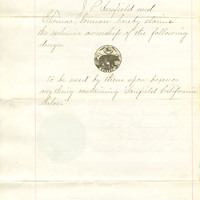 J. P. Sarsfield and
Thomas Dorman hereby claim
the exclusive ownership of the following
design
to be used by them upon boxes or
any thing containing Sarsfield California